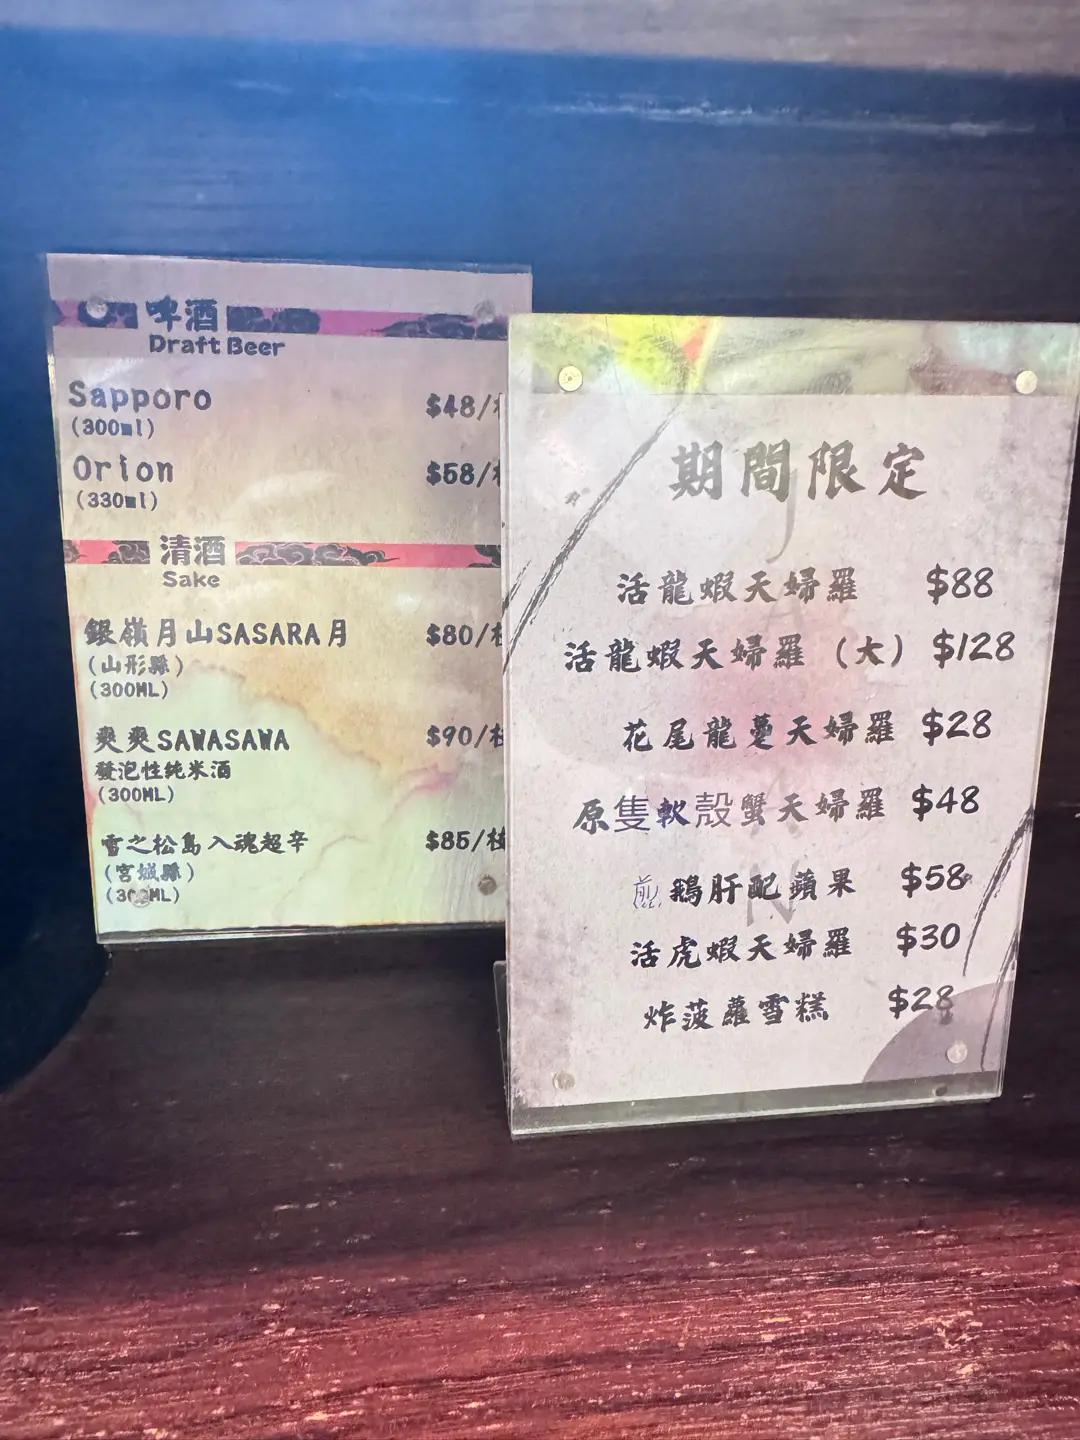 啤酒
Draft Beer
Sapporo $48/
(300ml)
Orion $58/
(330ml)
清酒
Sake
銀嶺月山SASARA月 $80/
(山形縣)
(300ML)
爽爽SAWASAWA $90/
發泡性純米酒
(300ML)
雪之松島入魂超辛 $85/枝
(宮城縣)
(300ML)
期間限定
活龍蝦天婦羅 $88
活龍蝦天婦羅（大） $128
花尾龍躉天婦羅 $28
原隻軟殼蟹天婦羅 $48
煎鵝肝配蘋果 $58
活虎蝦天婦羅 $30
炸菠蘿雪糕 $28